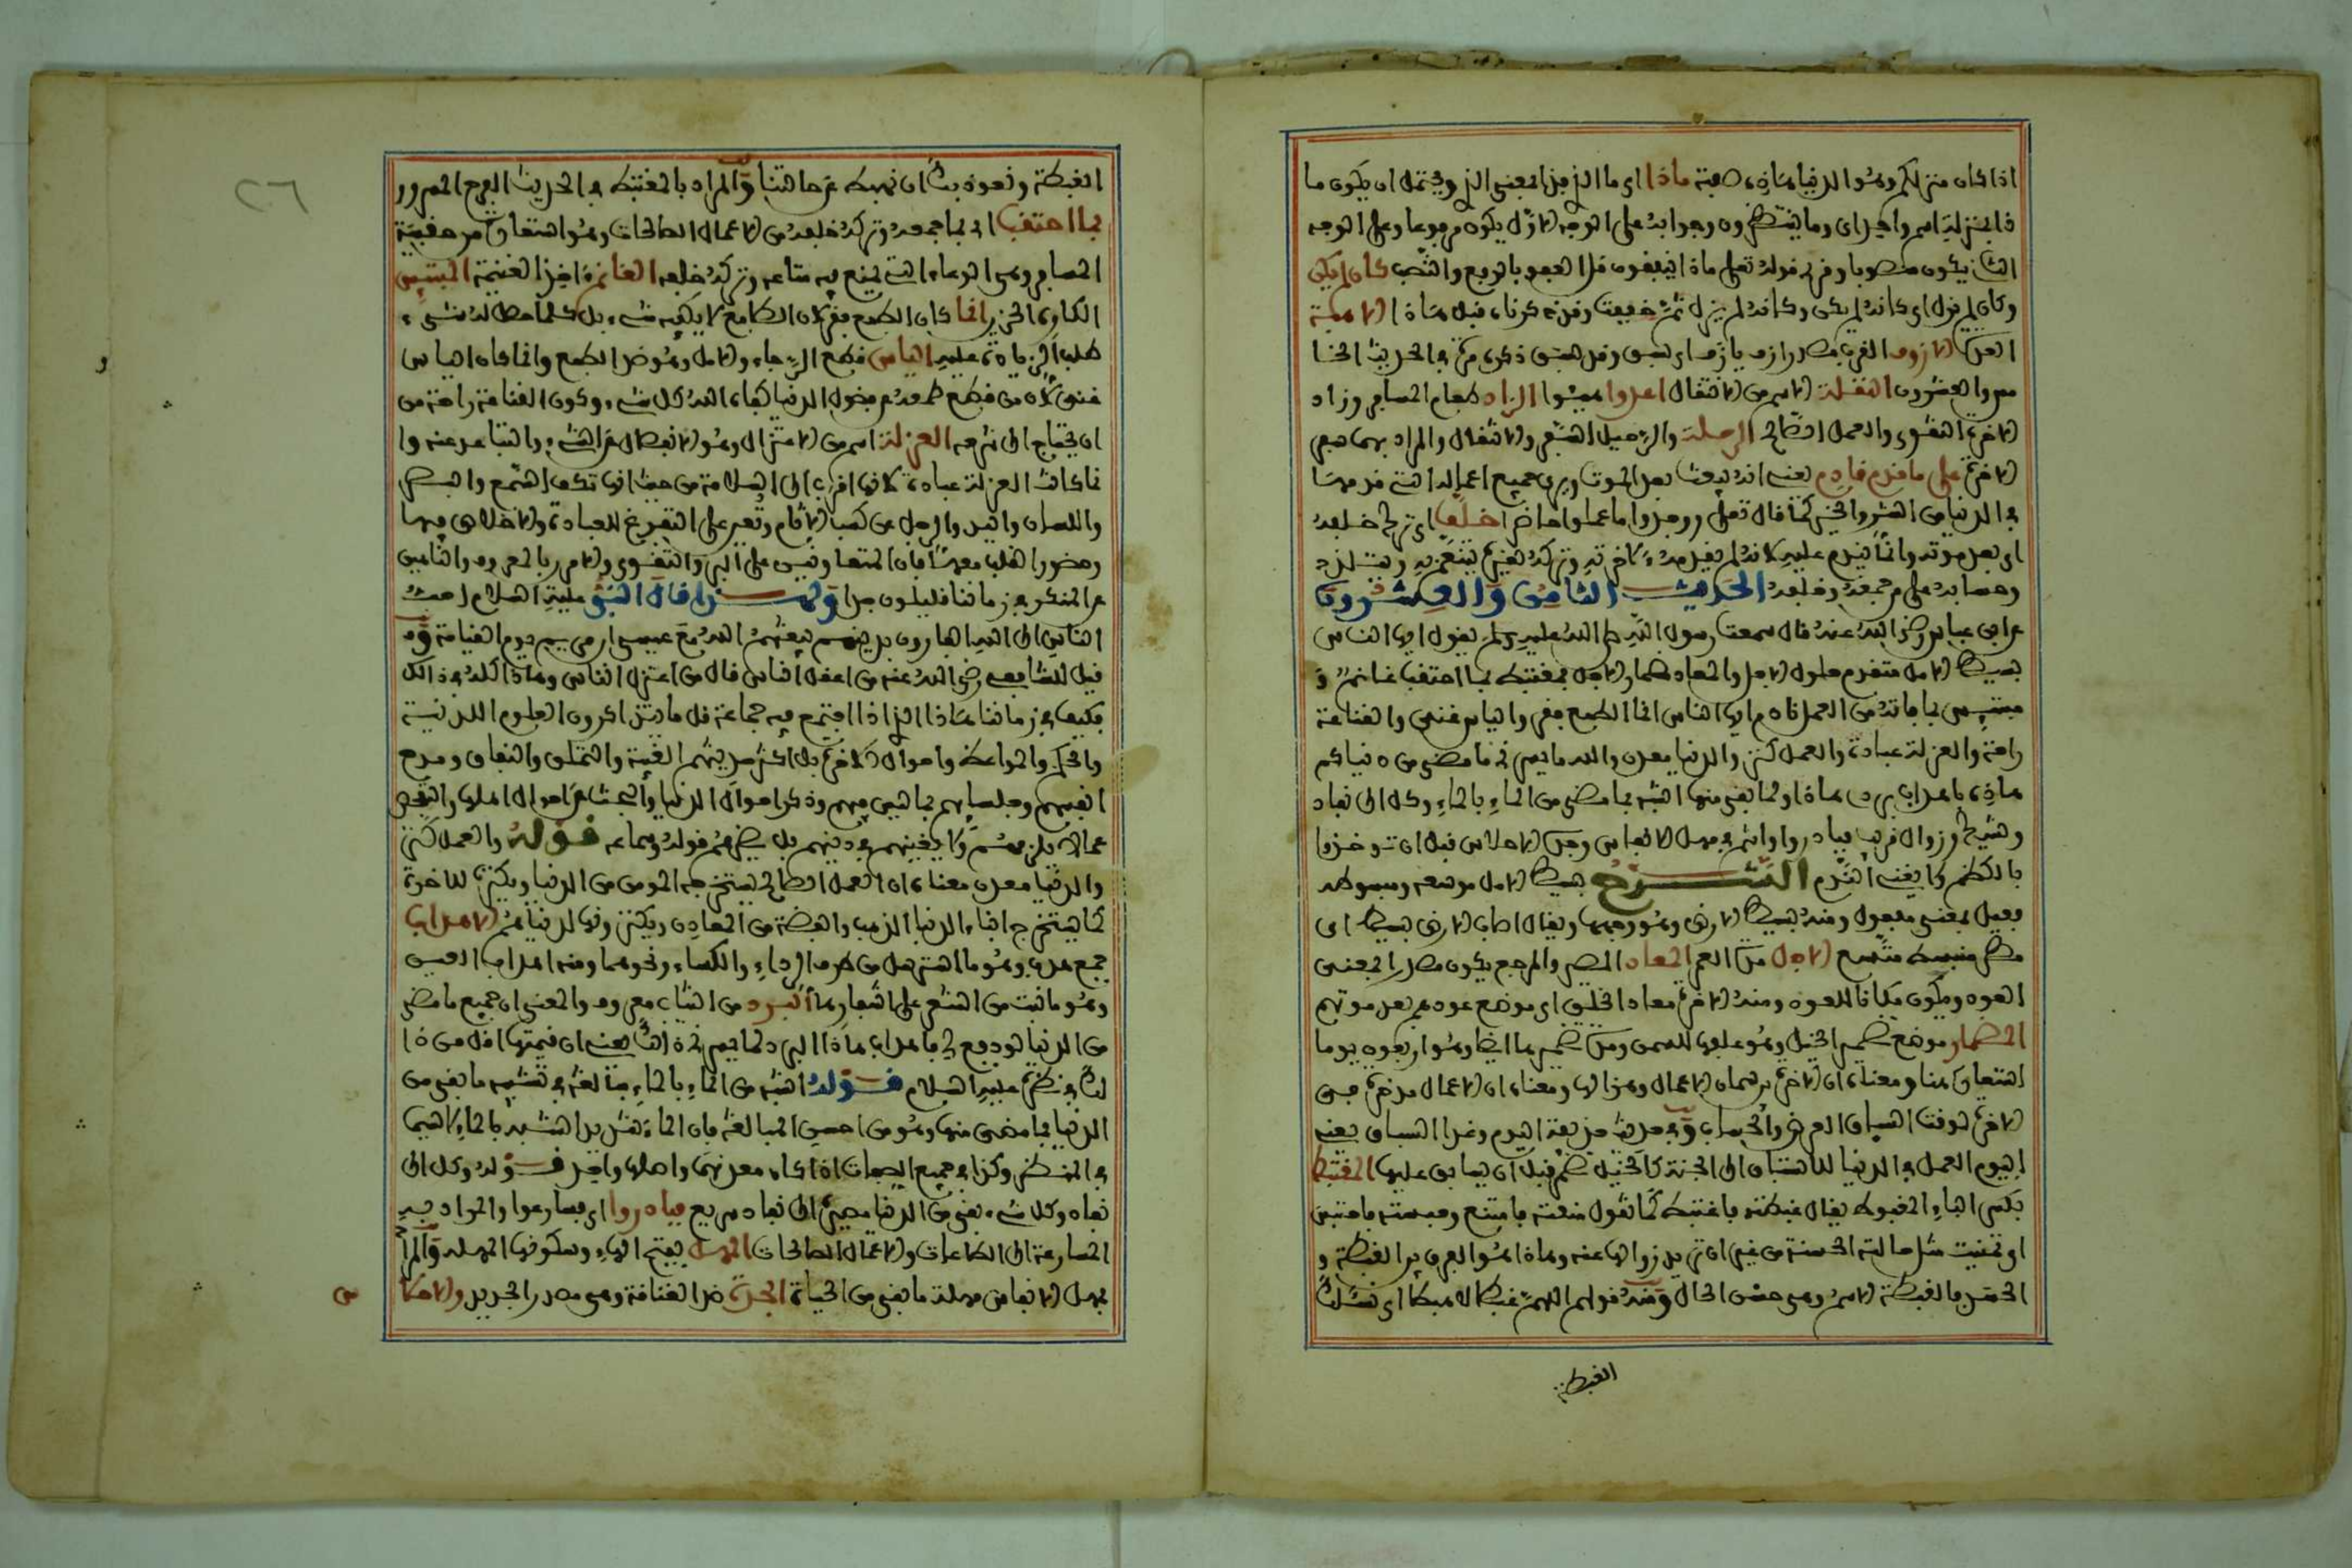 اذا كان منزلكم وهو الدنيا هاذه صفته ماذا اي ما الذي هذا المعنى الذي ويحتمل ان يكون ما
ذا بمنزلة اسم واحد اي وما ينتظرون وجوابه على الوجه الاول يكون مرفوعا وعلى الوجه
الثاني يكون منصوبا وقرئ قوله تعلى ماذا ينفقون قل العفو بالرفع والنصب كان لم يكن
وكان لم يزل اي كانه لم يكن وكانه لم يزل ثم خففت وقد ذكرناه قبل هذا الاهبة
العدة الازوف القرب مصدر ازف يازف اي وقد سبق ذكره في الحديث الخا
مس والعشرون النقلة الاسم من الانتقال اعدوا هيئوا الزاد طعام المسافر وزاد
الاخرة التقوى والعمل الصالح الرحلة والرحيل السفر والانتقال والمراد بهما هي
الاخرة على ما قدم قادم يعني انه يبعث بعد الموت ويرى جميع اعماله التي قدمها
في الدنيا من الشر والخير كما قال تعلى ووجدوا ما عملوا حاضرا خلف اي ترك خلفه
اي بعد موته وانما يندم عليه لانه لم يقدمه لاخرته وتركه لغيره يتنعم به ويتلذذ
وحسابه على من جمعه وخلفه الحديث الثامن والعشرون
عن ابن عباس رضي الله عنه قال سمعت رسول الله صلى الله عليه وسلم يقول ايها الناس
بسيط الامل متقدم حلول الاجل والمعاد مضمار الاجل فمغتبط بما احتقب غانم و
مبتئس بما فاته من العمل نادم ايها الناس ان الطمع فقر والياس غنى والقناعة
راحة والعزلة عبادة والعمل كنز والدنيا معدن والله ما يسرني ما مضى من دنياكم
هاذه باهداب بردي هاذا ولما بقي منها اشبه بما مضى من الماء بالماء وكل الى نفاد
وشيك وزوال قريب فبادروا وانتم في مهل الانفاس وجدة الاحلاس قبل ان تؤخذوا
بالكظم ولا يغني الندم الشرح بسيط الامل موسعه ومبسوطه
فعيل بمعنى مفعول ومنه بسيط الارض وهو وجهها ويقال اصاب الارض بسيط اي
مطر منبسط متسع الاجل مدة العمر المعاد المصير والمرجع يكون مصدرا لمعنى
العود ويكون مكانا للعود ومنه الاخرة معاد الخلق اي موضع عودهم بعد موتهم
المضمار موضع تضمير الخيل وهو علفها للسمن ومدة تضميرها ايضا وهو اربعون يوما
استعارة هنا ومعناه ان الاخرة برهان الاعمال وهزالها ومعناه ان الاعمال مدخرة في
الاخرة لوقت السباق العرض والحساب وفي حديث حذيفة اليوم وغدا السباق يعني
اليوم العمل في الدنيا للاستباق الى الجنة كالخيل تضمر قبل ان يسابق عليها المغتبط
بكسر الباء المغبوط يقال غبطته فاغتبط كما تقول منعته فامتنع وحبسته فاحتبس
اي تمنيت مثل حالته الحسنة من غير ان تريد زوالها عنه وهاذا هو الفرق بين الغبطة و
الحسد والغبطة الاسم وهي حسن الحال ومنه قولهم اللهم غبطا لا هبطا اي نسئلك
الغبطة
٢٦
الغبطة ونعوذ بك ان نهبط عن حالتنا والمراد بالمغتبط في الحديث الفرح المسرور
بما احتقب اي بما جمعه وتركه خلفه من الاعمال الصالحات وهو استعارة من حقيبة
المسافر وهي الوعاء التي يجمع فيه متاعه وتركه خلفه الغانم اخذ الغنيمة المبتئس
الكاره الحزين انما كان الطمع فقر لان الطامع لا يكفيه شيء بل كلما حصل له شيء
طلب الزيادة عليه الياس قطع الرجاء والامل وهو ضد الطمع وانما كان الياس
غنى لان من قطع طمعه من فضول الدنيا كفاه الله كل شيء وكون القناعة راحة من
ان يحتاج الى شرحه العزلة اسم من الاعتزال وهو الانفصال عن الشيء والتباعد عنه وا
نما كانت العزلة عبادة لانها اقرب الى السلامة من حيث انها تكف السمع والبصر
واللسان واليد والرجل عن كسب الاثام وتعين على التفرغ للعبادة والاخلاص فيها
وحضور القلب معها فان المتعاونين على البر والتقوى والامر بالمعروف والناهين
عن المنكر في زماننا قليلون جدا ولهذا قال النبي عليه السلام احب
الناس الى الله الفارون بدينهم يبعثهم الله مع عيسى ابن مريم يوم القيامة وقد
قيل للشافعي رضي الله عنه من اعقل الناس قال من اعتزل الناس وهاذا كله في ذالك
فكيف في زماننا هاذا الذي اذا اجتمع فيه جماعة قل ما يتذاكرون العلوم الدينية
والحكم والمواعظ واحوال الاخرة بل اكثر حديثهم الغيبة والتملق والنفاق ومدح
انفسهم وجلسائهم بما ليس فيهم وذكر احوال الدنيا والبحث عن احوال اهلها والتفحص
عما لا يلزمهم ولا يعنيهم في دينهم بل يضرهم قوله وسماعه قوله والعمل كنز
والدنيا معدن معناه ان العمل الصالح يستخرجه المومن من الدنيا ويكنزه للاخرة
كما يستخرج ابناء الدنيا الذهب والفضة من المعادن ويكنزونها لدنياهم الاهداب
جمع هدب وهو ما استرسل من طرف الرداء والكساء ونحوهما ومنه اهداب العين
وهو ما نبت من الشعر على اشفارها البرد من الثياب معروف والمعنى ان جميع ما مضى
من الدنيا لو دفع لي باهداب هاذا البرد لما يسرني يعني ان قيمتها اقل من ذا
لك في نظره عليه السلام قوله اشبه من الماء بالماء مبالغة في تشبيه ما بقي من
الدنيا بما مضى منها وهو من احسن المبالغة فان الماء شديد الشبه بالماء لا سيما
في المنظر وكذا في جميع الصفات اذا كان معدنهما واصلهما واحد قوله وكل الى
نفاد وكل شيء بقي من الدنيا مصيره الى نفاد سريع فبادروا اي فسارعوا والمراد به
المسارعة الى الطاعات والاعمال الصالحات المهل بفتح الهاء وسكونها المهلة والمراد
بمهل الانفاس مهلة ما بقي من الحياة الجدة ضد القدامة وهي مصدر الجديد والاحلا
س